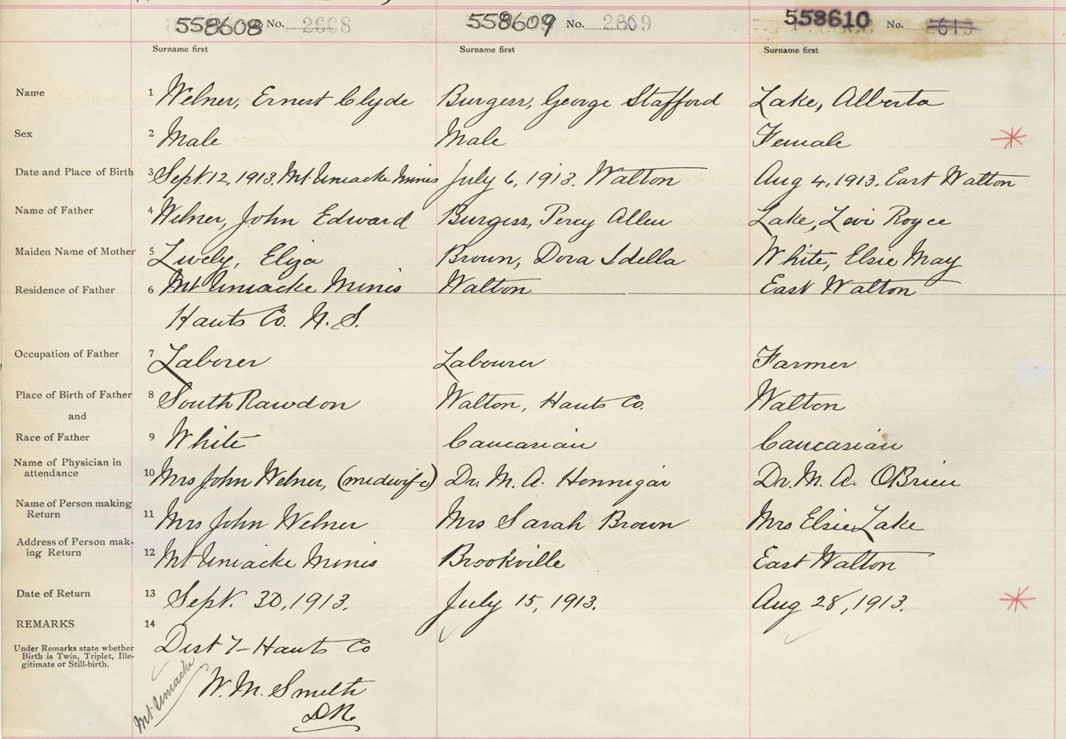 558608 No. 2668 558609 No. 2609 558610 No.
Surname first Surname first Surname first
Name 1 Welner, Ernest Clyde Burgess, George Stafford Lake, Alberta
Sex 2 Male Male Female
Date and Place of Birth 3 Sept. 12, 1913. Mt. Uniacke Mines July 6, 1913. Walton Aug 4, 1913. East Walton
Name of Father 4 Welner, John Edward Burgess, Percy Allen Lake, Levi Royce
Maiden Name of Mother 5 Lively, Eliza Brown, Dora Idella White, Elsie May
Residence of Father 6 Mt Uniacke Mines Walton East Walton
Hants Co. N.S.
Occupation of Father 7 Laborer Labourer Farmer
Place of Birth of Father 8 South Rawdon Walton, Hants Co. Walton
and
Race of Father 9 White Caucasian Caucasian
Name of Physician in
attendance 10 Mrs John Welner, (midwife) Dr. M. A. Hennigar Dr. M. A. O'Brien
Name of Person making
Return 11 Mrs John Welner Mrs Sarah Brown Mrs Elsie Lake
Address of Person mak-
ing Return 12 Mt Uniacke Mines Brookville East Walton
Date of Return 13 Sept. 30, 1913. July 15, 1913. Aug 28, 1913.
REMARKS 14
Under Remarks state whether
Birth is Twin, Triplet, Ille-
gitimate or Still-birth.
Dist 7 - Hants Co
Mt Uniacke
W. M. Smith
DR